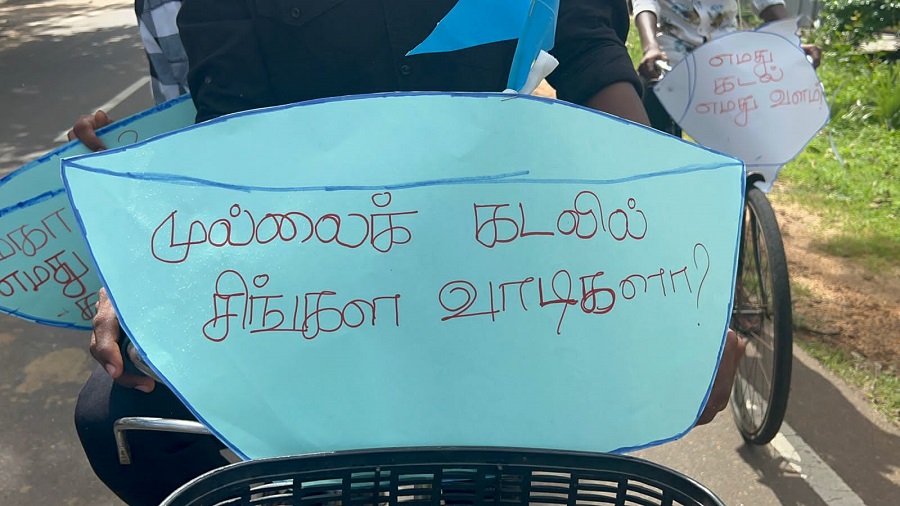 முல்லைக் கடலில்
சிங்கள வாடிகளா?
எமது
கடல்
எமது வளம்
எமது